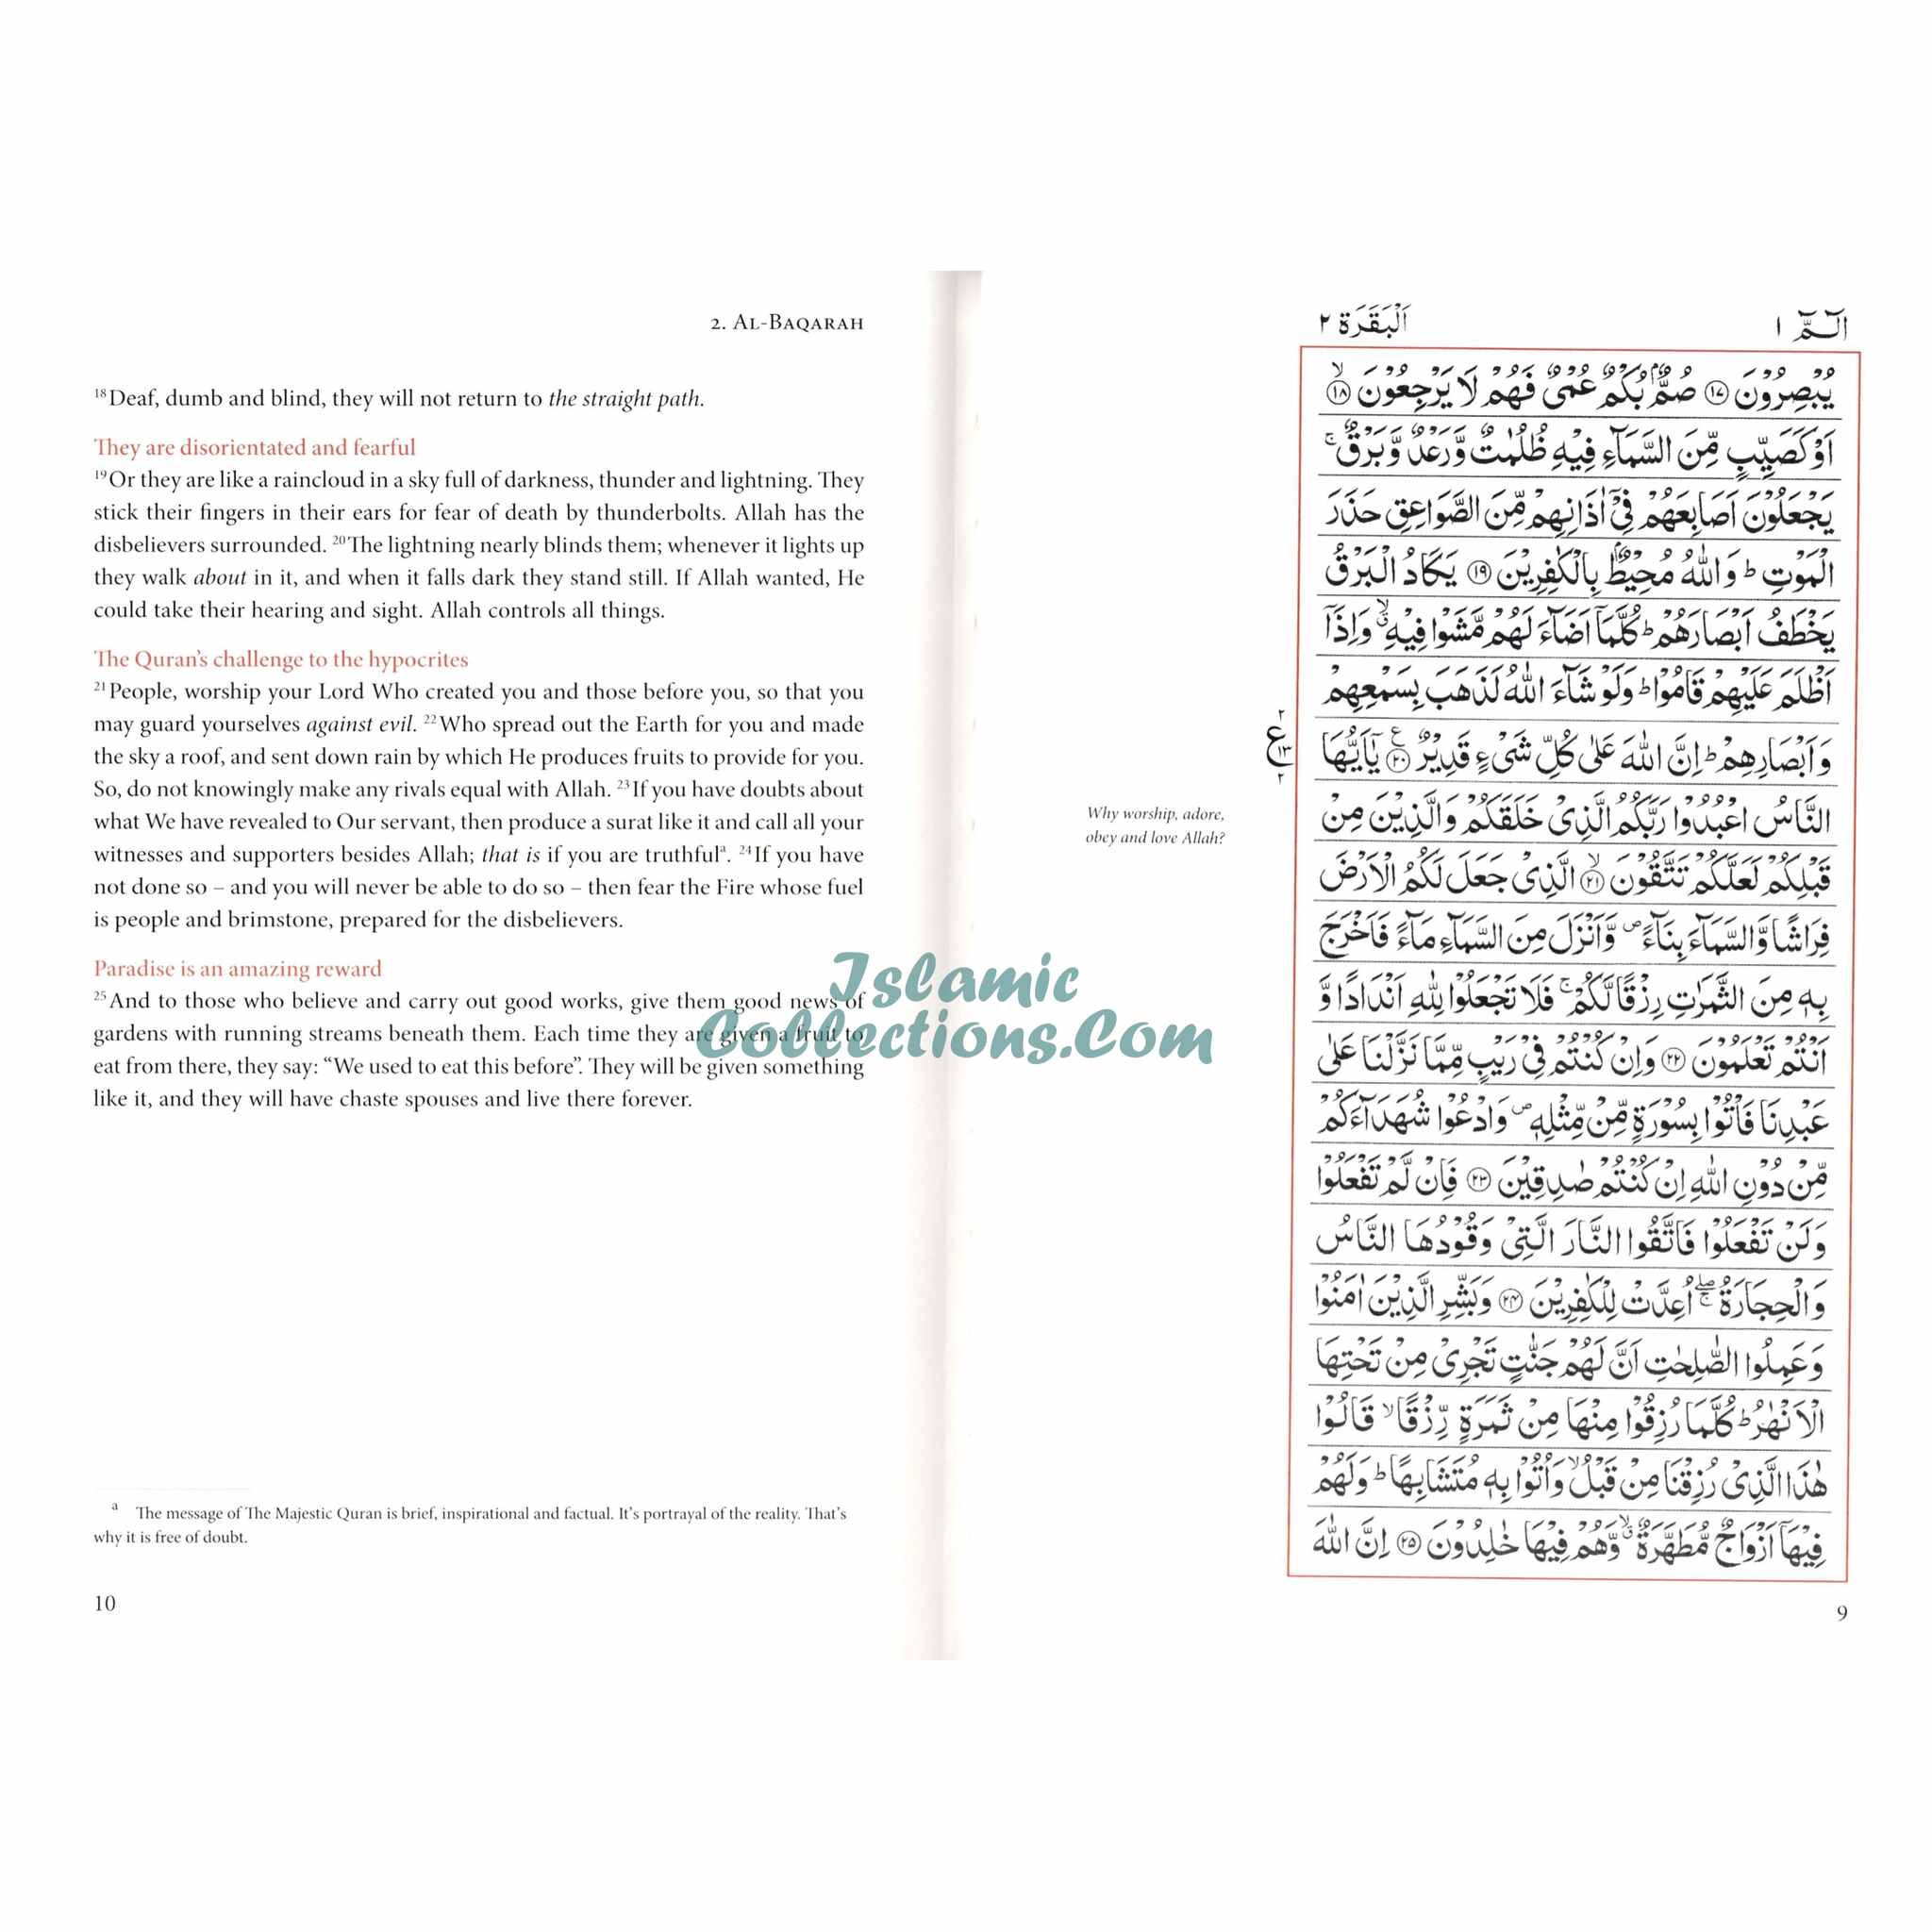 2. Al-Baqarah
18Deaf, dumb and blind, they will not return to the straight path.
They are disorientated and fearful
19Or they are like a raincloud in a sky full of darkness, thunder and lightning. They
stick their fingers in their ears for fear of death by thunderbolts. Allah has the
disbelievers surrounded. 20The lightning nearly blinds them; whenever it lights up
they walk about in it, and when it falls dark they stand still. If Allah wanted, He
could take their hearing and sight. Allah controls all things.
The Quran's challenge to the hypocrites
21People, worship your Lord Who created you and those before you, so that you
may guard yourselves against evil. 22Who spread out the Earth for you and made
the sky a roof, and sent down rain by which He produces fruits to provide for you.
So, do not knowingly make any rivals equal with Allah. 23If you have doubts about
what We have revealed to Our servant, then produce a surat like it and call all your
witnesses and supporters besides Allah; that is if you are truthfulª. 24If you have
not done so – and you will never be able to do so – then fear the Fire whose fuel
is people and brimstone, prepared for the disbelievers.
Paradise is an amazing reward
25And to those who believe and carry out good works, give them good news of
gardens with running streams beneath them. Each time they are given a fruit to
eat from there, they say: “We used to eat this before”. They will be given something
like it, and they will have chaste spouses and live there forever.
a The message of The Majestic Quran is brief, inspirational and factual. It's portrayal of the reality. That's
why it is free of doubt.
10
Islamic
Collections.Com
الٓمّٓ ١
اَلْبَقَرَة ٢
يُبْصِرُوْنَ ١٧ صُمٌّۢ بُكْمٌ عُمْيٌ فَهُمْ لَا يَرْجِعُوْنَ ۙ ١٨
اَوْ كَصَيِّبٍ مِّنَ السَّمَآءِ فِيْهِ ظُلُمٰتٌ وَّرَعْدٌ وَّبَرْقٌ ۚ
يَجْعَلُوْنَ اَصَابِعَهُمْ فِيْٓ اٰذَانِهِمْ مِّنَ الصَّوَاعِقِ حَذَرَ
الْمَوْتِ ؕ وَاللّٰهُ مُحِيْطٌۢ بِالْكٰفِرِيْنَ ١٩ يَكَادُ الْبَرْقُ
يَخْطَفُ اَبْصَارَهُمْ ؕ كُلَّمَآ اَضَآءَ لَهُمْ مَّشَوْا فِيْهِ ۙۗ وَاِذَآ
اَظْلَمَ عَلَيْهِمْ قَامُوْا ؕ وَلَوْ شَآءَ اللّٰهُ لَذَهَبَ بِسَمْعِهِمْ
وَاَبْصَارِهِمْ ؕ اِنَّ اللّٰهَ عَلٰى كُلِّ شَيْءٍ قَدِيْرٌ ٢٠ يٰٓاَيُّهَا
٢ ع ١٣ ٢
النَّاسُ اعْبُدُوْا رَبَّكُمُ الَّذِيْ خَلَقَكُمْ وَالَّذِيْنَ مِنْ
Why worship, adore,
obey and love Allah?
قَبْلِكُمْ لَعَلَّكُمْ تَتَّقُوْنَ ۙ ٢١ الَّذِيْ جَعَلَ لَكُمُ الْاَرْضَ
فِرَاشًا وَّالسَّمَآءَ بِنَآءً ۪ وَّاَنْزَلَ مِنَ السَّمَآءِ مَآءً فَاَخْرَجَ
بِهٖ مِنَ الثَّمَرٰتِ رِزْقًا لَّكُمْ ۚ فَلَا تَجْعَلُوْا لِلّٰهِ اَنْدَادًا وَّ
اَنْتُمْ تَعْلَمُوْنَ ٢٢ وَاِنْ كُنْتُمْ فِيْ رَيْبٍ مِّمَّا نَزَّلْنَا عَلٰى
عَبْدِنَا فَاْتُوْا بِسُوْرَةٍ مِّنْ مِّثْلِهٖ ۪ وَادْعُوْا شُهَدَآءَكُمْ
مِّنْ دُوْنِ اللّٰهِ اِنْ كُنْتُمْ صٰدِقِيْنَ ٢٣ فَاِنْ لَّمْ تَفْعَلُوْا
وَلَنْ تَفْعَلُوْا فَاتَّقُوا النَّارَ الَّتِيْ وَقُوْدُهَا النَّاسُ
وَالْحِجَارَةُ ۖۚ اُعِدَّتْ لِلْكٰفِرِيْنَ ٢٤ وَبَشِّرِ الَّذِيْنَ اٰمَنُوْا
وَعَمِلُوا الصّٰلِحٰتِ اَنَّ لَهُمْ جَنّٰتٍ تَجْرِيْ مِنْ تَحْتِهَا
الْاَنْهٰرُ ؕ كُلَّمَا رُزِقُوْا مِنْهَا مِنْ ثَمَرَةٍ رِّزْقًا ۙ قَالُوْا
هٰذَا الَّذِيْ رُزِقْنَا مِنْ قَبْلُ ۙ وَاُتُوْا بِهٖ مُتَشَابِهًا ؕ وَلَهُمْ
فِيْهَآ اَزْوَاجٌ مُّطَهَّرَةٌ ۙۗ وَّهُمْ فِيْهَا خٰلِدُوْنَ ٢٥ اِنَّ اللّٰهَ
9